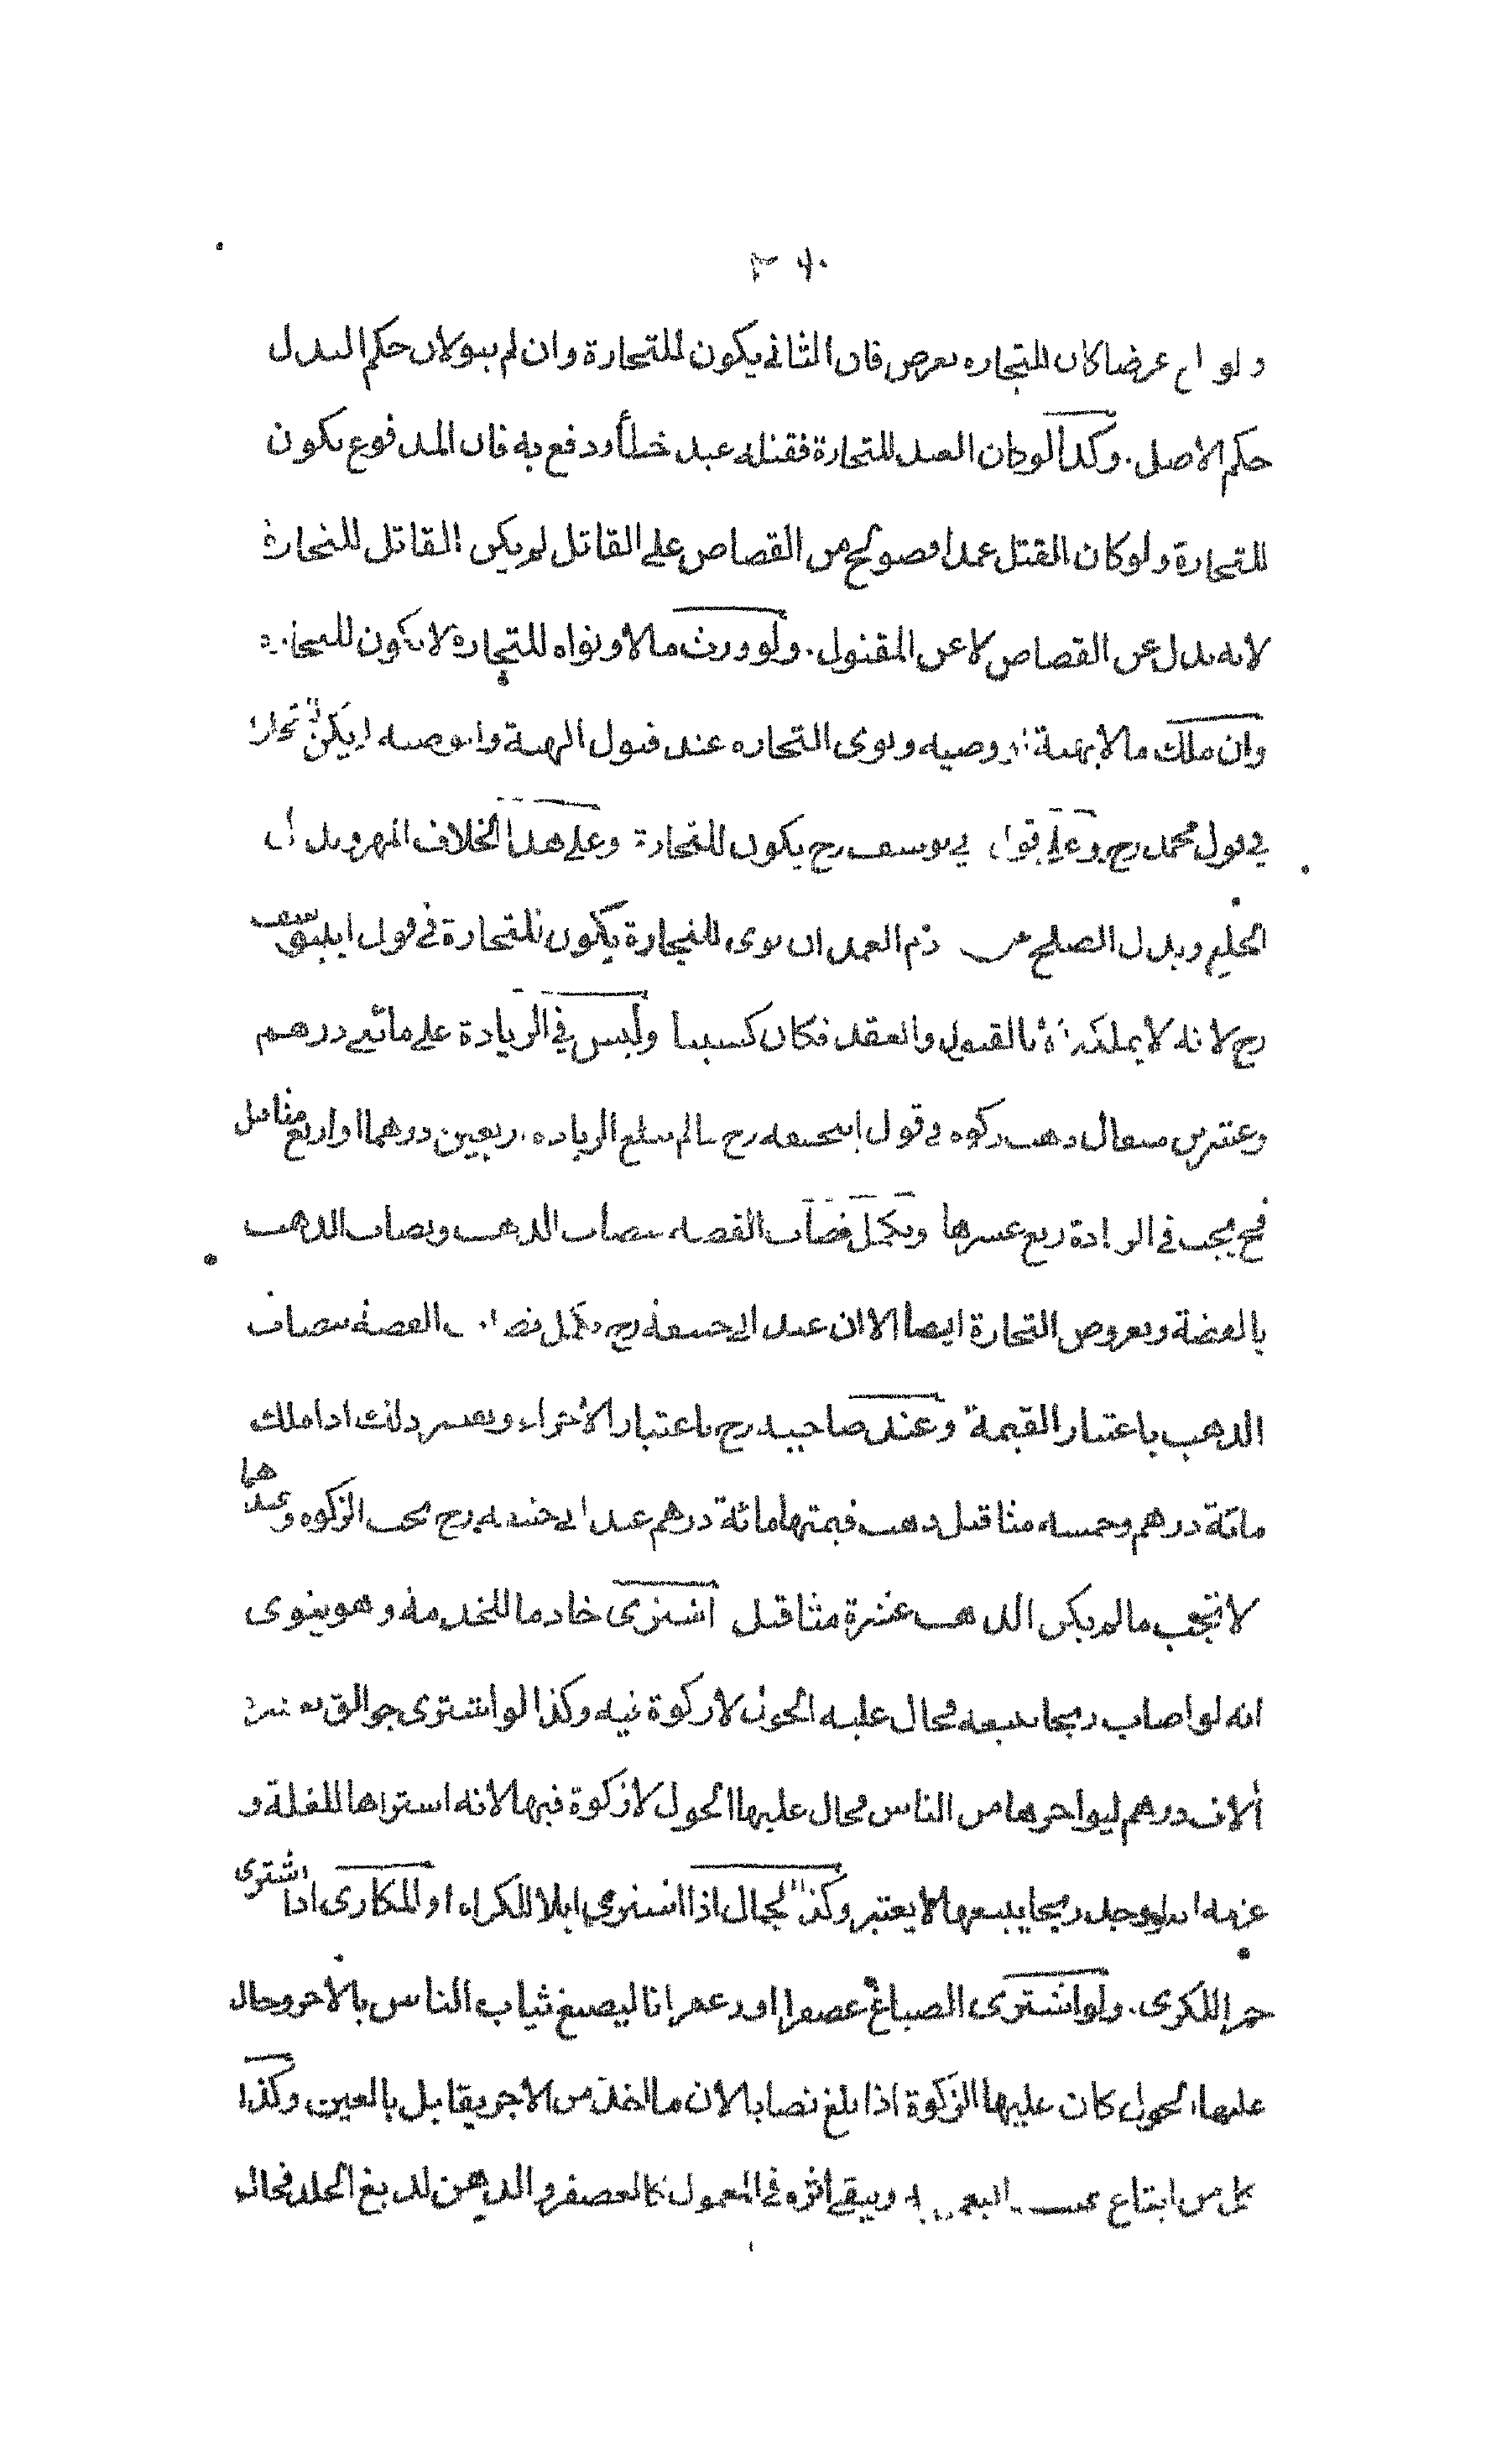 ولو باع عرضا كان للتجارة بعرض فان الثاني يكون للتجارة وان لم ينو لان حكم البدل
حكم الاصل. وكذا لو كان العبد للتجارة فقتله عبد خطأ ودفع به فان المدفوع يكون
للتجارة ولو كان القتل عمدا فصولح من القصاص على القاتل لم يكن القاتل للتجارة
لانه بدل عن القصاص لا عن المقتول. ولو ورث مالا ونواه للتجارة لا يكون للتجارة
وان ملك مالا بهبة او وصيه ونوى التجاره عند قبول الهبة والوصيه لم يكن للتجارة
في قول محمد رح وعلى قول ابي يوسف رح يكون للتجارة وعلى هذا الخلاف المهر وبدل
الخلع وبدل الصلح عن دم العمد ان نوى للتجارة يكون للتجارة في قول ابي يوسف
رح لانه لا يملكه الا بالقبول والعقد فكان كسبا وليس في الزيادة على مائتي درهم
وعشرين مثقال ذهب زكوه في قول ابي حنيفه رح ما لم يبلغ الزياده اربعين درهما او اربع مثاقيل
فح يجب في الزيادة ربع عشرها ويكمل نصاب الفضه بنصاب الذهب ونصاب الذهب
بالفضة وبعروض التجارة ايضا الا ان عند ابي حنيفة رح يكمل نصاب الفضة بنصاب
الذهب باعتبار القيمة وعند صاحبيه رح باعتبار الاجزاء وتفسير ذلك اذا ملك
مائة درهم وخمسه مثاقيل ذهب قيمتها مائة درهم عند ابي حنيفه رح يجب الزكوه وعندهما
لا تجب ما لم يكن الذهب عشرة مثاقيل اشترى خادما للخدمة وهو ينوي
انه لو اصاب ربحا يبيعه فحال عليه الحول لا زكوة فيه وكذا لو اشترى جوالق بعشرة
ألاف درهم ليواجرها من الناس فحال عليها الحول لا زكوة فيها لانه اشتراها للغلة و
عزمه انه لو وجد ربحا يبيعها لا يعتبر وكذا الجمال اذا اشترى ابلا للكراء او المكارى اذا اشترى
حمرا للكرى. ولو اشترى الصباغ عصفرا او زعفرانا ليصبغ ثياب الناس بالاجر وحال
عليها الحول كان عليها الزكوة اذا بلغ نصابا لان ما اخذ من الاجر يقابل بالعين وكذا
كل من ابتاع ويبقى اثره في المعمول كالعصفر والدهن لدبغ الجلد فحال